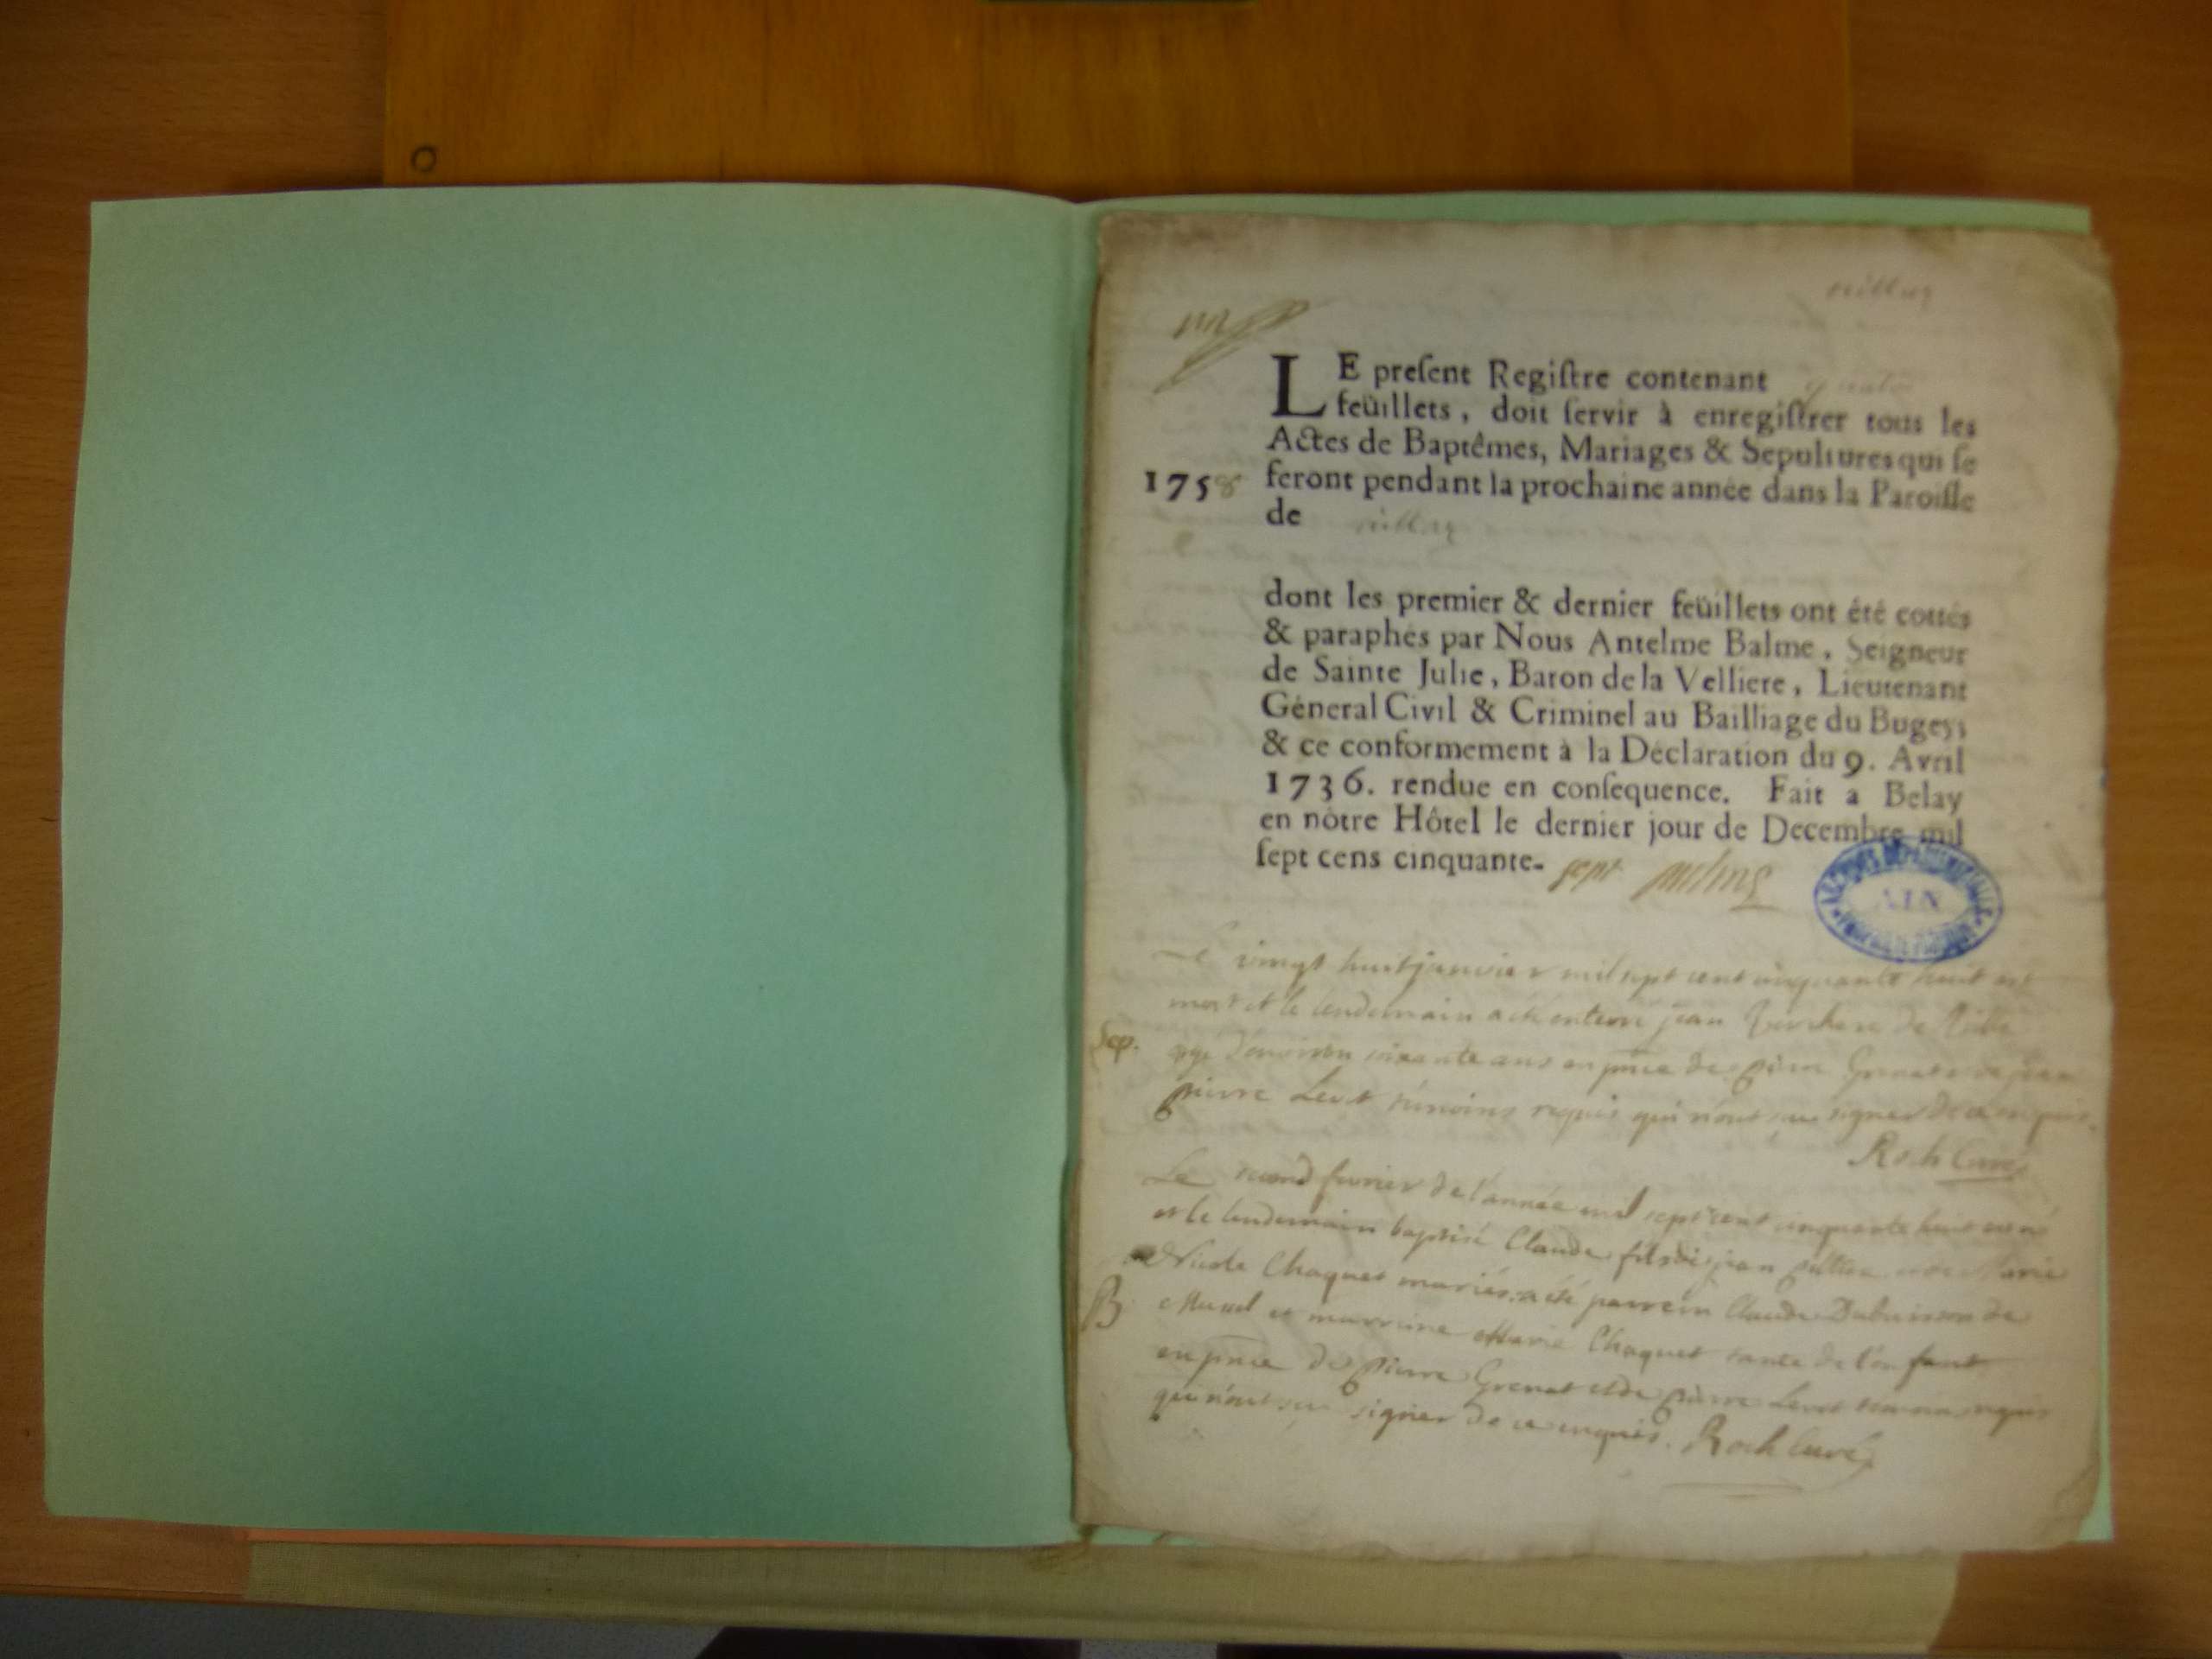 LE preſent Regiſtre contenant
feüillets, doit ſervir à enregiſtrer tous les
Actes de Baptêmes, Mariages & Sepultures qui ſe
1758 feront pendant la prochaine année dans la Paroiſſe
de
dont les premier & dernier feüillets ont été cottés
& paraphés par Nous Antelme Balme, Seigneur
de Sainte Julie, Baron de la Velliere, Lieutenant
Géneral Civil & Criminel au Bailliage du Bugey;
& ce conformement à la Déclaration du 9. Avril
1736. rendue en conſequence. Fait a Belay
en nôtre Hôtel le dernier jour de Decembre mil
ſept cens cinquante- sept
AIN
Le vingt huit janvier mil sept cent cinquante huit est
mort et le lendemain a été enterré jean de
Sep. agé d'environ soixante ans en pnce de pierre Grenat et de jean
pierre Levet témoins requis qui n'ont su signer de ce enquis.
Roch Curé
Le second fevrier de l'année mil sept cent cinquante huit est né
et le lendemain baptisé Claude fils de jean et de Marie
Nicole Chaquet mariés a été parrein Claude Dubuisson de
B et marraine Marie Chaquet tante de l'enfant
en pnce de pierre Grenat et de pierre Levet temoins requis
qui n'ont su signer de ce enquis. Roch Curé